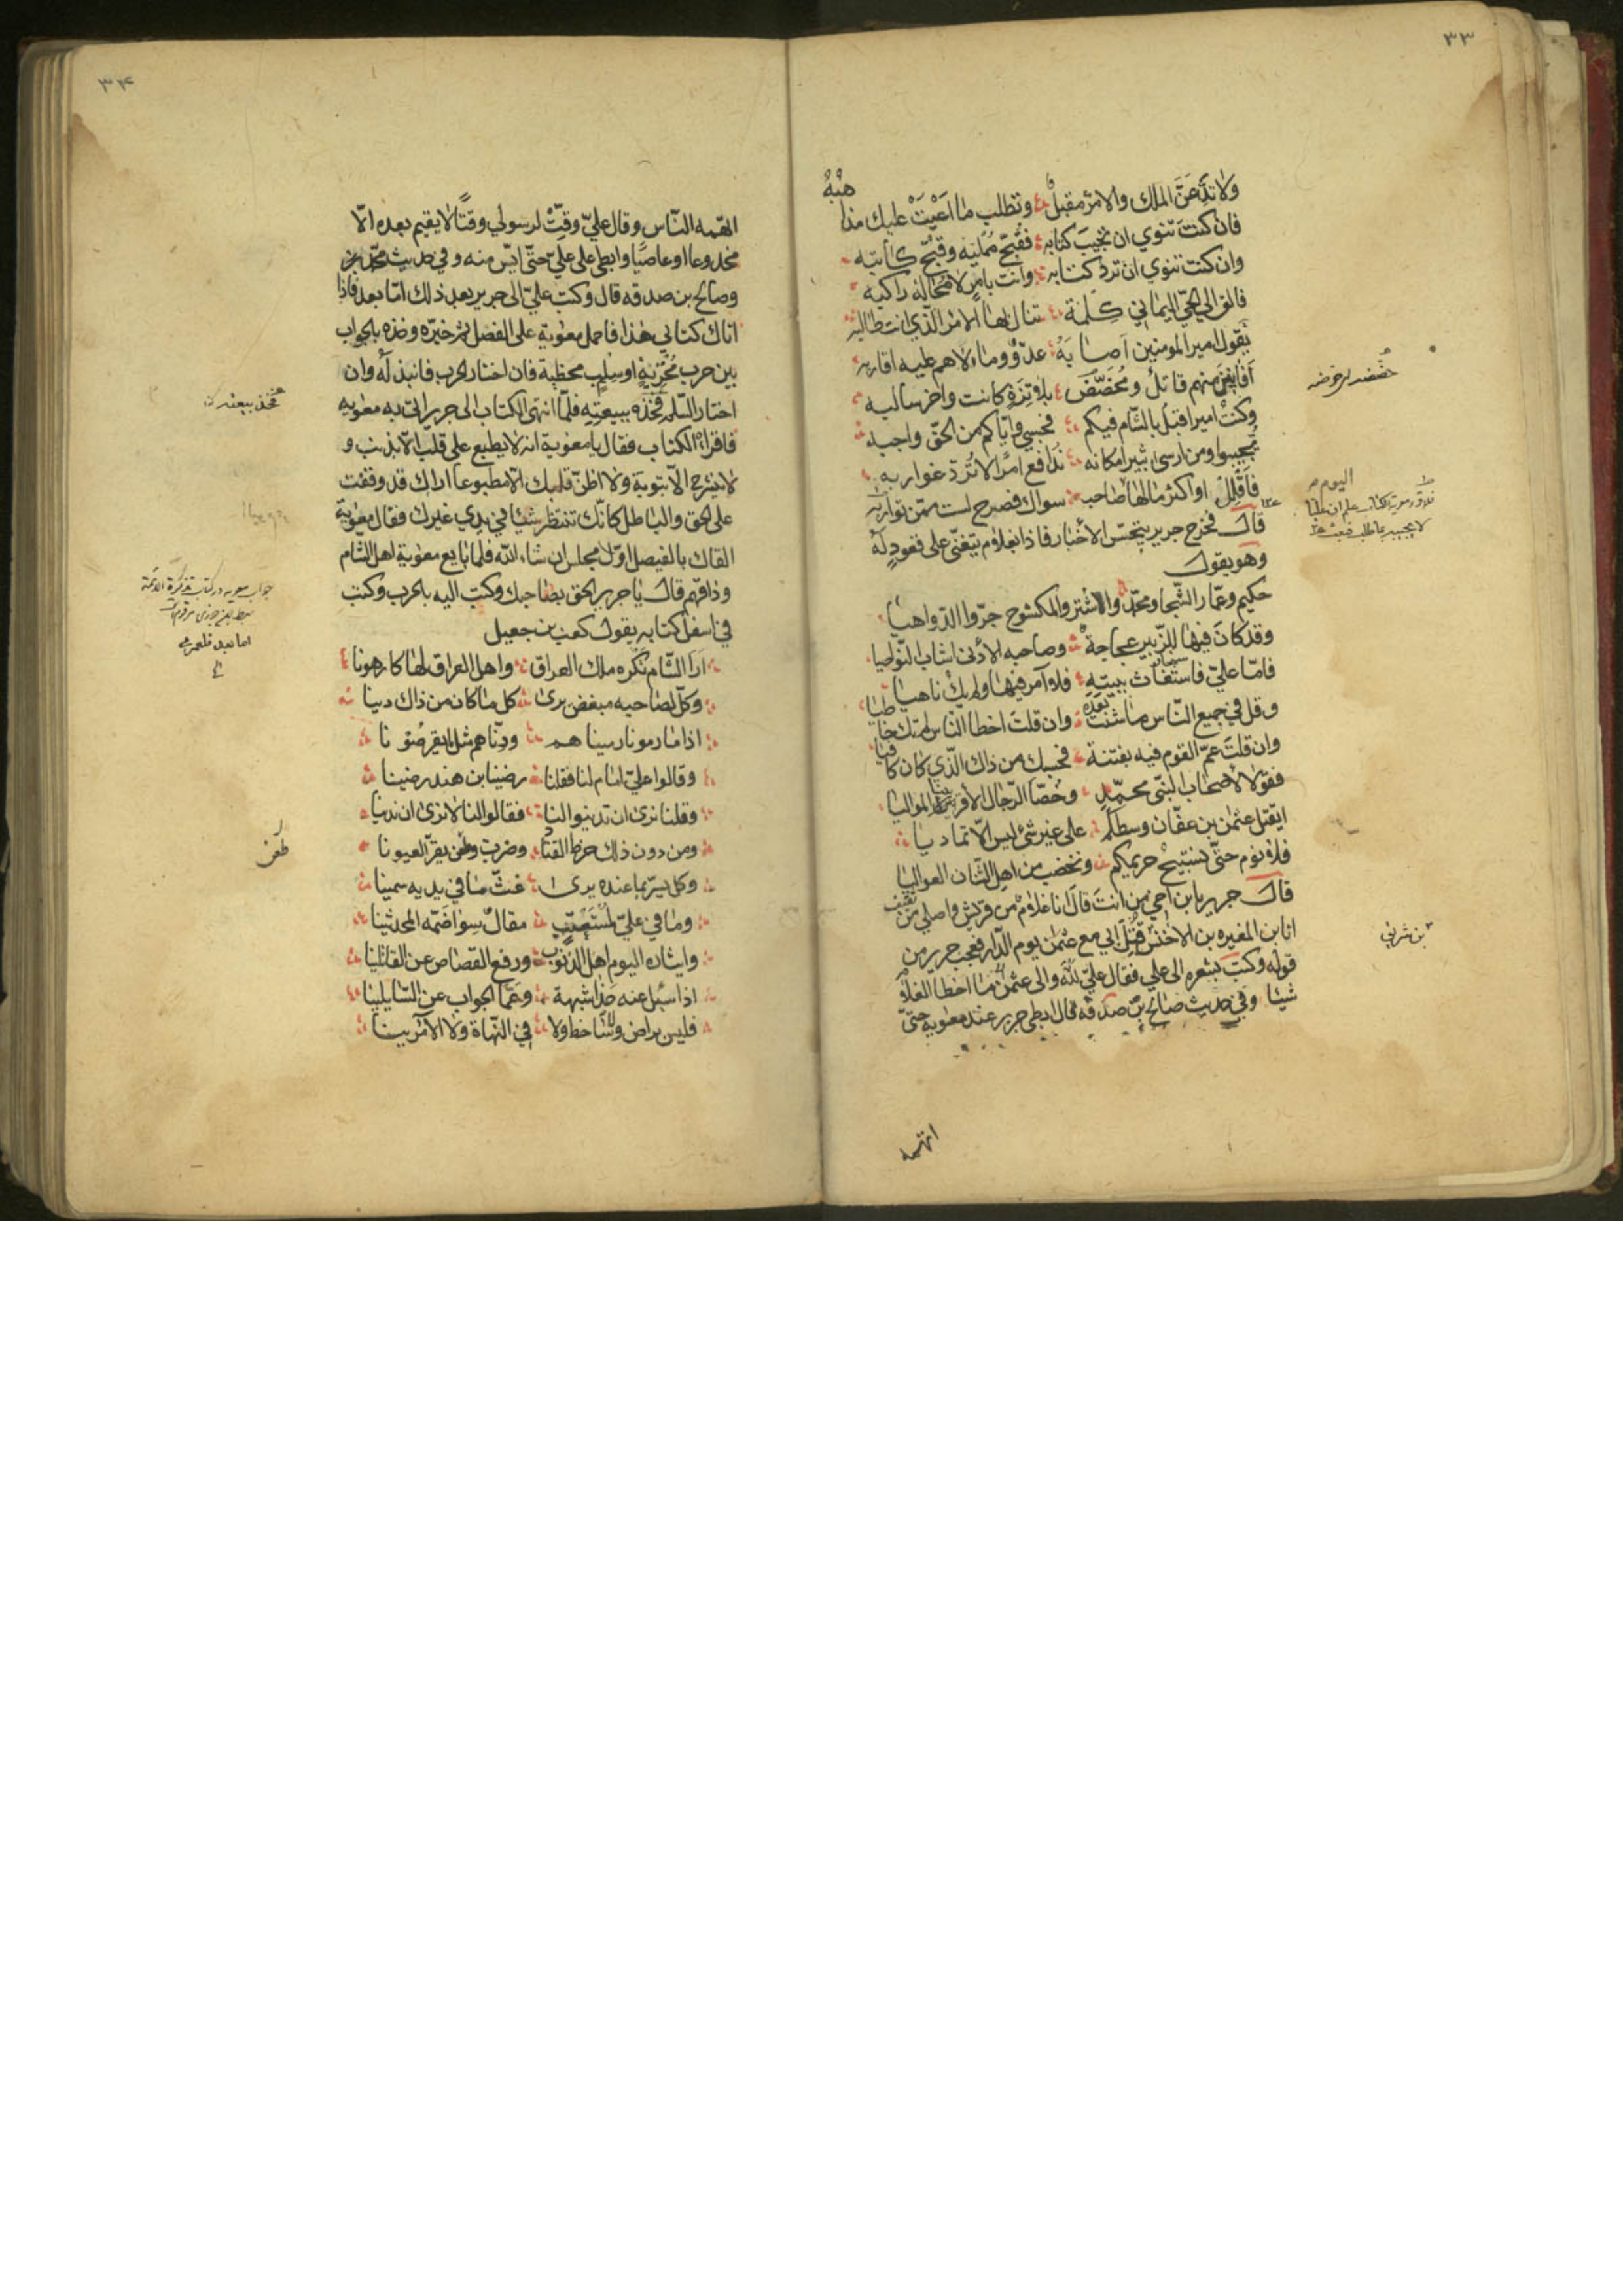 ٣٣
ولا تدعن الملك والامر مقبل وتطلب ما اعيت عليك مذا
هبه
فان كنت تنوي ان تجيب كتابه فقبح ممليه وقبح كاتبه
وان كنت تنوي ان ترد كتابه وانت بامر لا محالة راكبه
فالق الي الحي اليماني كلمة تنال بها الامر الذي انت طالبه
يقول امير المومنين اصابه عدو وما لاهم عليه اقاربه
افانين منهم قاتل ومحضض بلا ترة كانت واخر سالبه
وكنت اميرا قبل بالشام فيكم فحسبي واياكم من الحق واجبه
تجيبوا ومن ارسى ثبيرا مكانه ندافع امرا لا ترد غواربه
فاقلل او اكثر ما لها صاحب سواك فصرح لست ممن تواربه
قال فخرج جرير يتجسس الأخبار فاذا بغلام يتغنى على قعود له
وهو يقول
حكيم وعمار الشجا ومحمد والاشتر والمكشوح جروا الدواهيا
وقد كان فيها للزبير عجاجة وصاحبه الأدنى اشاب النواصيا
فاما علي فاستغاث ببيته فلا آمر فيها ولم يك ناهيا
وقل في جميع الناس ما شئت بعده وان قلت اخطا الناس لم تك خا
طيا
وان قلت عم القوم فيه بفتنة فحسبك من ذاك الذي كان كا
فيا
فقولا لأصحاب النبي محمد وخصا الرجال الأقربين المواليا
ايقتل عثمن بن عفان وسطكم على غير شئ ليس الا تماديا
فلا نوم حتى نستبيح حريمكم ونخضب من اهل الشان العواليا
قال جرير يابن اخي من انت قال انا غلام من قريش واصلي من ثقيف
انا ابن المغيره بن الاخنس قتل ابي مع عثمن يوم الدار فعجب جرير من
قوله وكتب بشعره الى علي فقال علي والله ما اخطا الغلام
شيئا وفي حديث صالح بن صدقه قال ابطى جرير عند معويه حتى
اتهمه
بن شريق
٣۴
اتهمه الناس وقال علي وقت لرسولي وقتا لا يقيم بعده الا
مخدوعا او عاصيا وابطى على علي حتى ايس منه وفي حديث محمد
وصالح بن صدقه قال وكتب علي الى جرير بعد ذلك اما بعد فاذا
اتاك كتابي هذا فاحمل معوية على الفصل ثم خيره وخذه بالجواب
بين حرب مخزية او سلم محظية فان اختار الحرب فانبذ له وان
اختار السلم فخذه ببيعته فلما انتهى الكتاب الى جرير اتى به معويه
فاقراه الكتاب فقال يا معوية انه لا يطبع على قلب الا بذنب و
لا ينشرح الا بتوبة ولا اظن قلبك الا مطبوعا اراك قد وقفت
على الحق والباطل كانك تنتظر شيئا في يدي غيرك فقال معوية
القاك بالفيصل اول مجلس ان شاء الله فلما بايع معوية اهل الشام
وذاقهم قال يا جرير الحق بصاحبك وكتب اليه بالحرب وكتب
في اسفل كتابه يقول كعب بن جعيل
ارا الشام تكره ملك العراق واهل العراق لها كارهونا
وكل لصاحبه مبغض يرى كل ما كان من ذاك دينا
اذا ما رمونا رميناهم ودناهم مثل ما يقرضونا
وقالوا علي امام لنا فقلنا رضينا ابن هند رضينا
وقلنا نرى ان تدينوا لنا فقالوا لنا لا نرى ان ندينا
ومن دون ذلك خرط القتاد وضرب وطعن يقر العيونا
وكل يسر بما عنده يرى غث ما في يديه سمينا
وما في علي لمستعتب مقال سوا ضمه المحدثينا
وايثاره اليوم اهل الذنوب ورفع القصاص عن القاتلينا
اذا سئل عنه حذا شبهة وعما الجواب عن السايلينا
فليس براض ولا ساخط ولا في النهاة ولا الآمرينا
فخذ ببيعته
اما بعد فلعمري